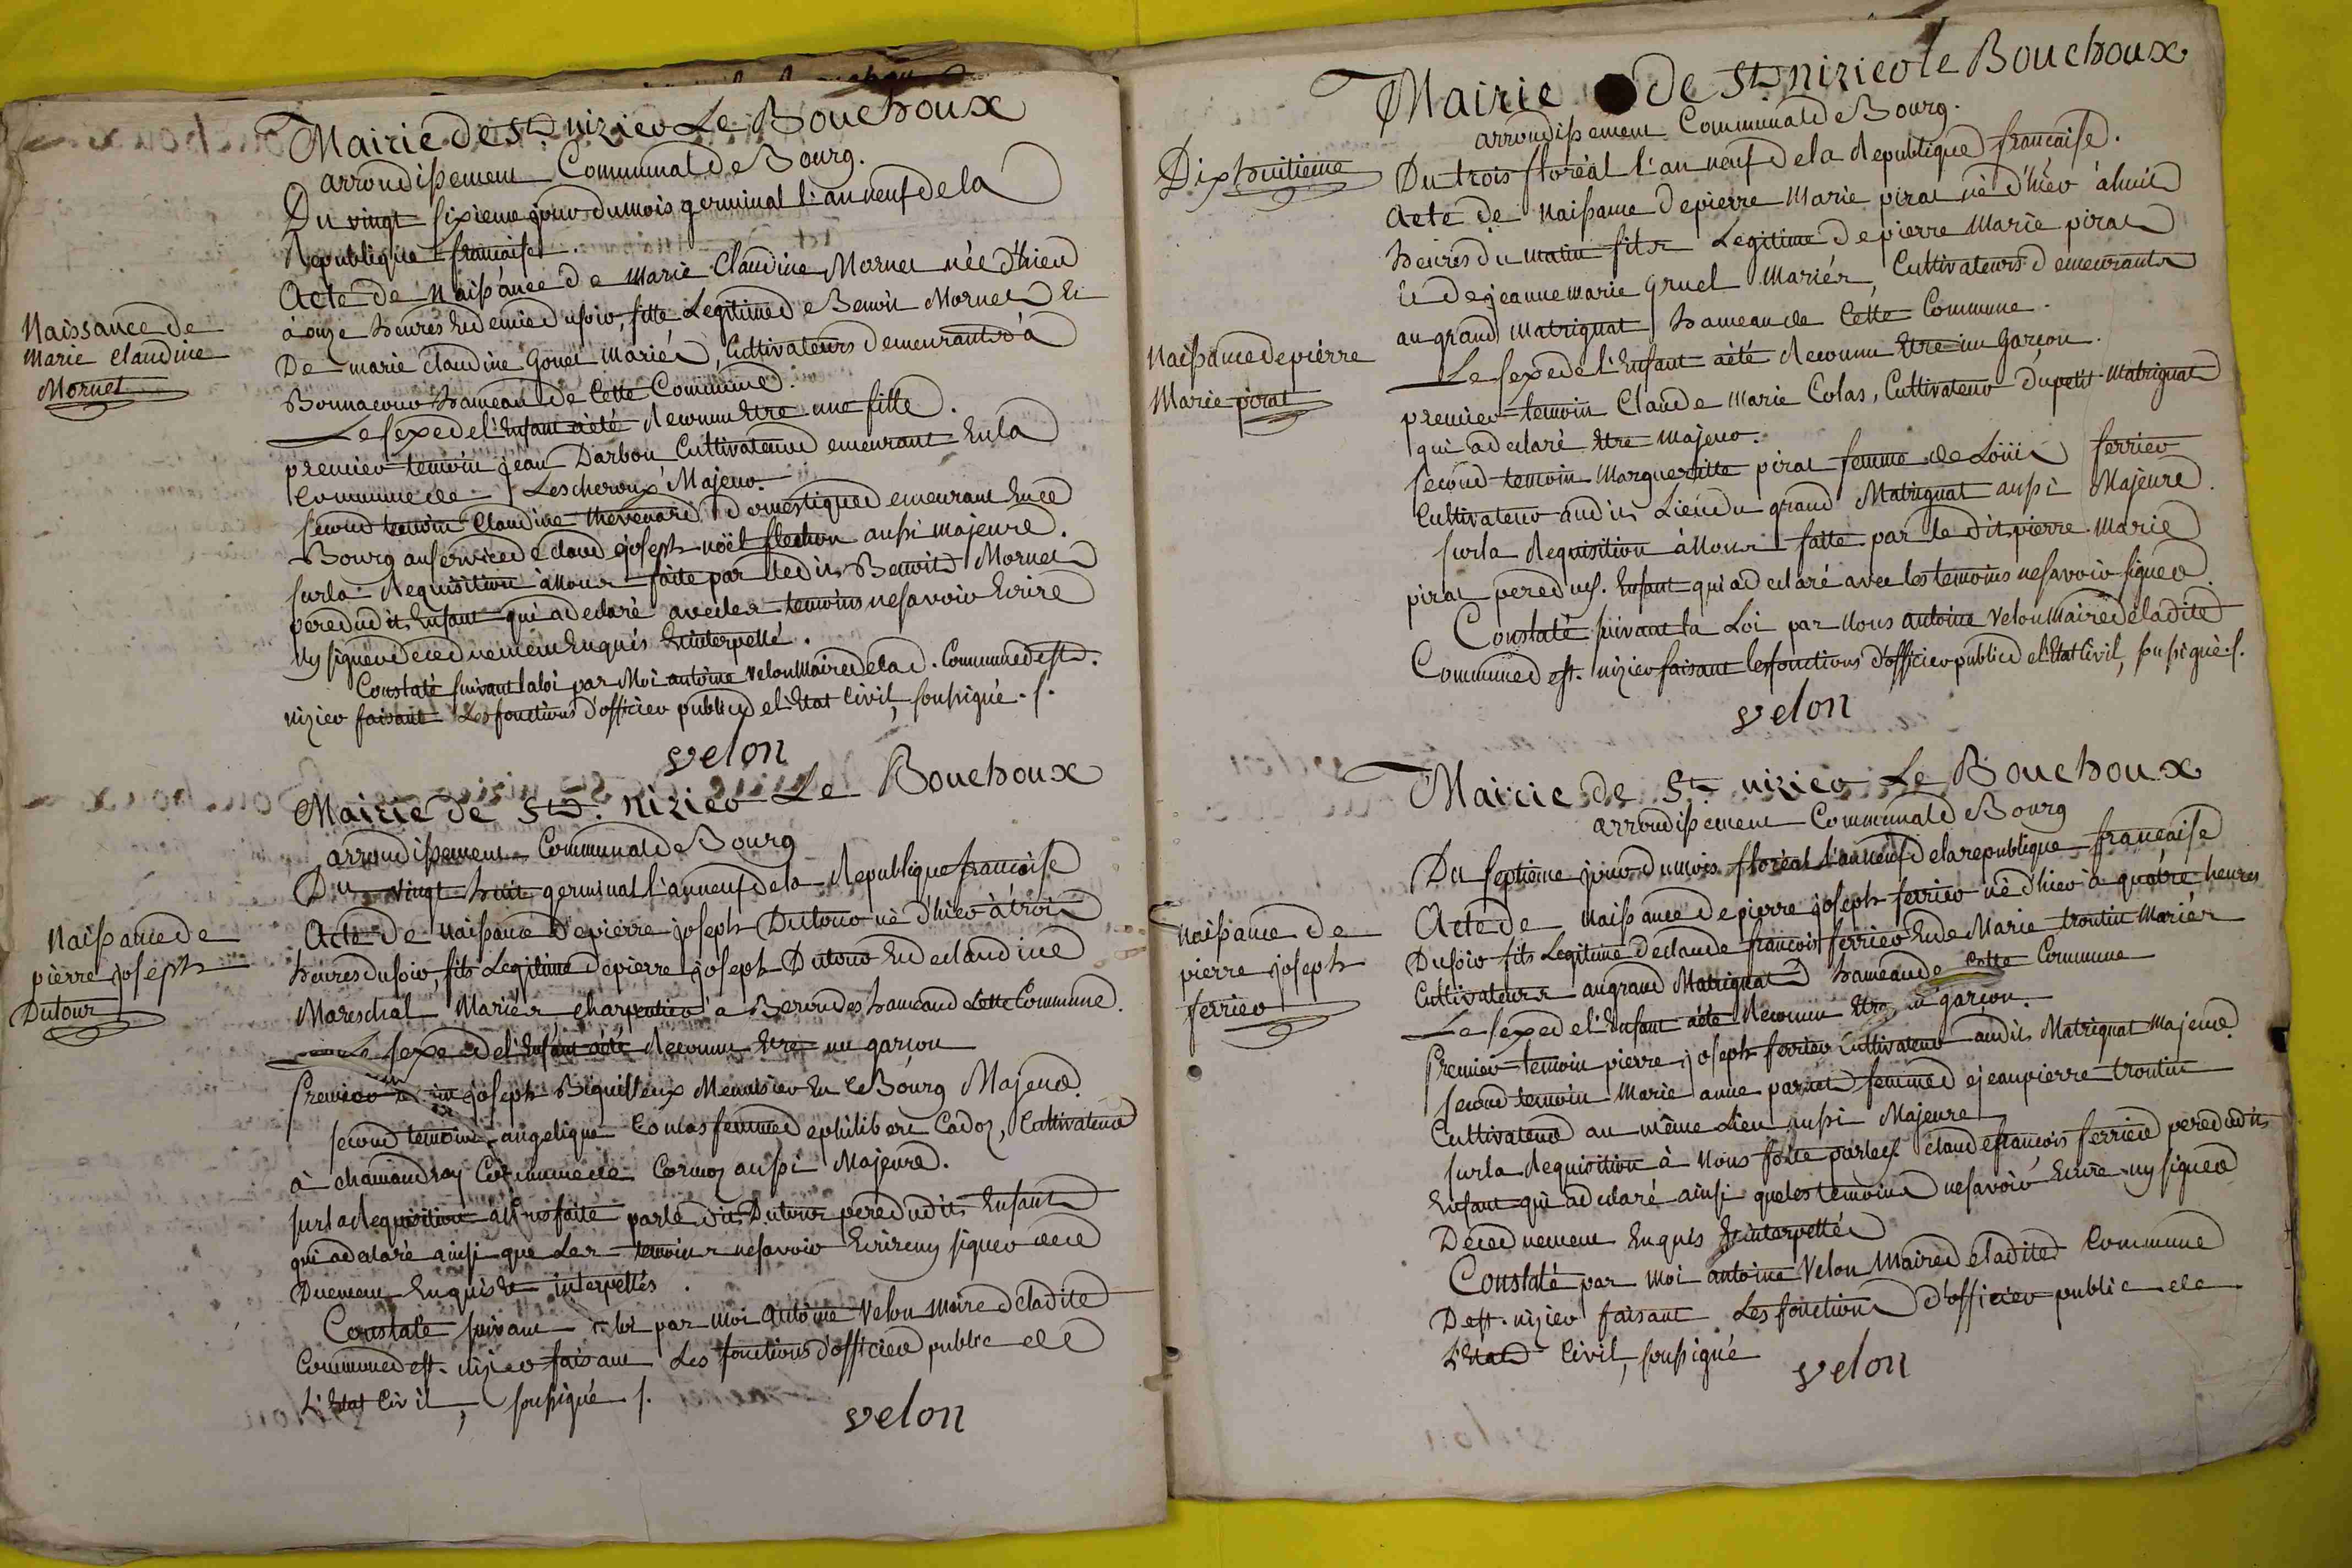 Mairie de St. nizier Le Bouchoux
arrondissement Communal de Bourg.
Du vingt sixieme jour du mois germinal l'an neuf de la
Republique francaise.
Acte de Naissance de marie Claudine Mornet née d'hier
à onze heures Et demie du soir, fille Legitime de Benoit Mornet Et
De marie claudine Gonet Mariés, Cultivateurs demeurants à
Bonnacour hameau de Cette Commune.
Le sexe de l'Enfant a été Reconnu Etre une fille.
premier temoin jean Darbon Cultivateur demeurant En la
Commune de Lescheroux Majeur.
second temoin Claudine thevenard domestique demeurant En ce
Bourg au service de claude joseph noël aussi majeure.
sur la Requisition à Nous faite par le dit Benoit Mornet
pere du dit Enfant qui a declaré avec les temoins ne savoir Ecrire
Ny signer de ce duement Enquis Et interpellé.
Constaté suivant la loi par Moi antoine velon Maire de la d. Commune de st.
nizier faisant Les fonctions d'officier public de l'Etat Civil, soussigné. s.
velon
Naissance de
Marie claudine
Mornet
Mairie de St. Nizier Le Bouchoux
arrondissement Communal de Bourg
Du vingt huit germinal l'an neuf de la Republique francoise
Acte de Naissance de pierre joseph Dutour né d'hier à trois
heures du soir, fils Legitime de pierre joseph Dutour Et de claudine
Mareschal Mariés charpentier à Berondes hameau de Cette Commune.
Le sexe de l'Enfant a été Reconnu Etre un garçon
Premier joseph Biguilleux Menuisier En ce Bourg Majeur.
second temoin angelique Coulas femme de philibert Cadoz, Cultivateur
à chamandray Commune de Cormoz aussi Majeure.
sur la Requisition à Nous faite par le dit Dutour pere du dit Enfant
qui a declaré ainsi que Les temoins ne savoir Ecrire ny signer de ce
Duement Enquis Et interpellés.
Constaté suivant loi par moi Antoine Velon maire de la dite
Commune de st. nizier faisant Les fonctions d'officier public de
L'Etat Civil, soussigné s.
velon
Naissance de
pierre joseph
Dutour
Mairie de St. nizier le Bouchoux
arrondissement Communal de Bourg.
Dix huitieme
Du trois floréal l'an neuf de la Republique francaise.
Acte de Naissance de pierre Marie pirat né d'hier à huit
heures du matin fils Legitime de pierre Marie pirat
Et de jeanne marie gruel Mariés, Cultivateurs demeurants
au grand Matrignat hameau de Cette Commune.
Le sexe de l'Enfant a été Reconnu Etre un Garçon.
premier temoin Claude Marie Colas, Cultivateur du petit Matrignat
qui a declaré Etre majeur.
second temoin Margueritte pirat femme de Loüis ferrier
Cultivateur au dit Lieu du grand Matrignat aussi Majeure.
sur la Requisition à Nous faite par le dit pierre Marie
pirat pere du s. Enfant qui a declaré avec les temoins ne savoir signer.
Constaté suivant la Loi par Nous antoine velon Maire de la dite
Commune de st. nizier faisant les fonctions d'officier public de l'Etat Civil, sussigné. s.
velon
Naissance de pierre
Marie pirat
Mairie de St. nizier Le Bouchoux
arrondissement Communal de Bourg
Du septieme jour du mois floréal l'an neuf de la republique francaise
Acte de Naissance de pierre joseph ferrier né d'hier à quatre heures
Du soir fils Legitime de claude francois ferrier Et de Marie trontin Mariés
Cultivateurs au grand Matrignat hameau de Cette Commune
Le sexe de l'Enfant a été Reconnu Etre un garçon.
Premier temoin pierre joseph ferrier Cultivateur au dit Matrignat majeur.
second temoin Marie anne parnet femme de jean pierre trontin
Cultivateur au même Lieu aussi Majeure
sur la Requisition à Nous faite par le s. claude francois ferrier pere du dit
Enfant qui a declaré ainsi que les temoins ne savoir Ecrire ny signer
De ce duement Enquis Et interpellés
Constaté par moi antoine Velon Maire de la dite Commune
De st. nizier faisant Les fonctions d'officier public de
L'Etat Civil, soussigné
velon
naissance de
pierre joseph
ferrier